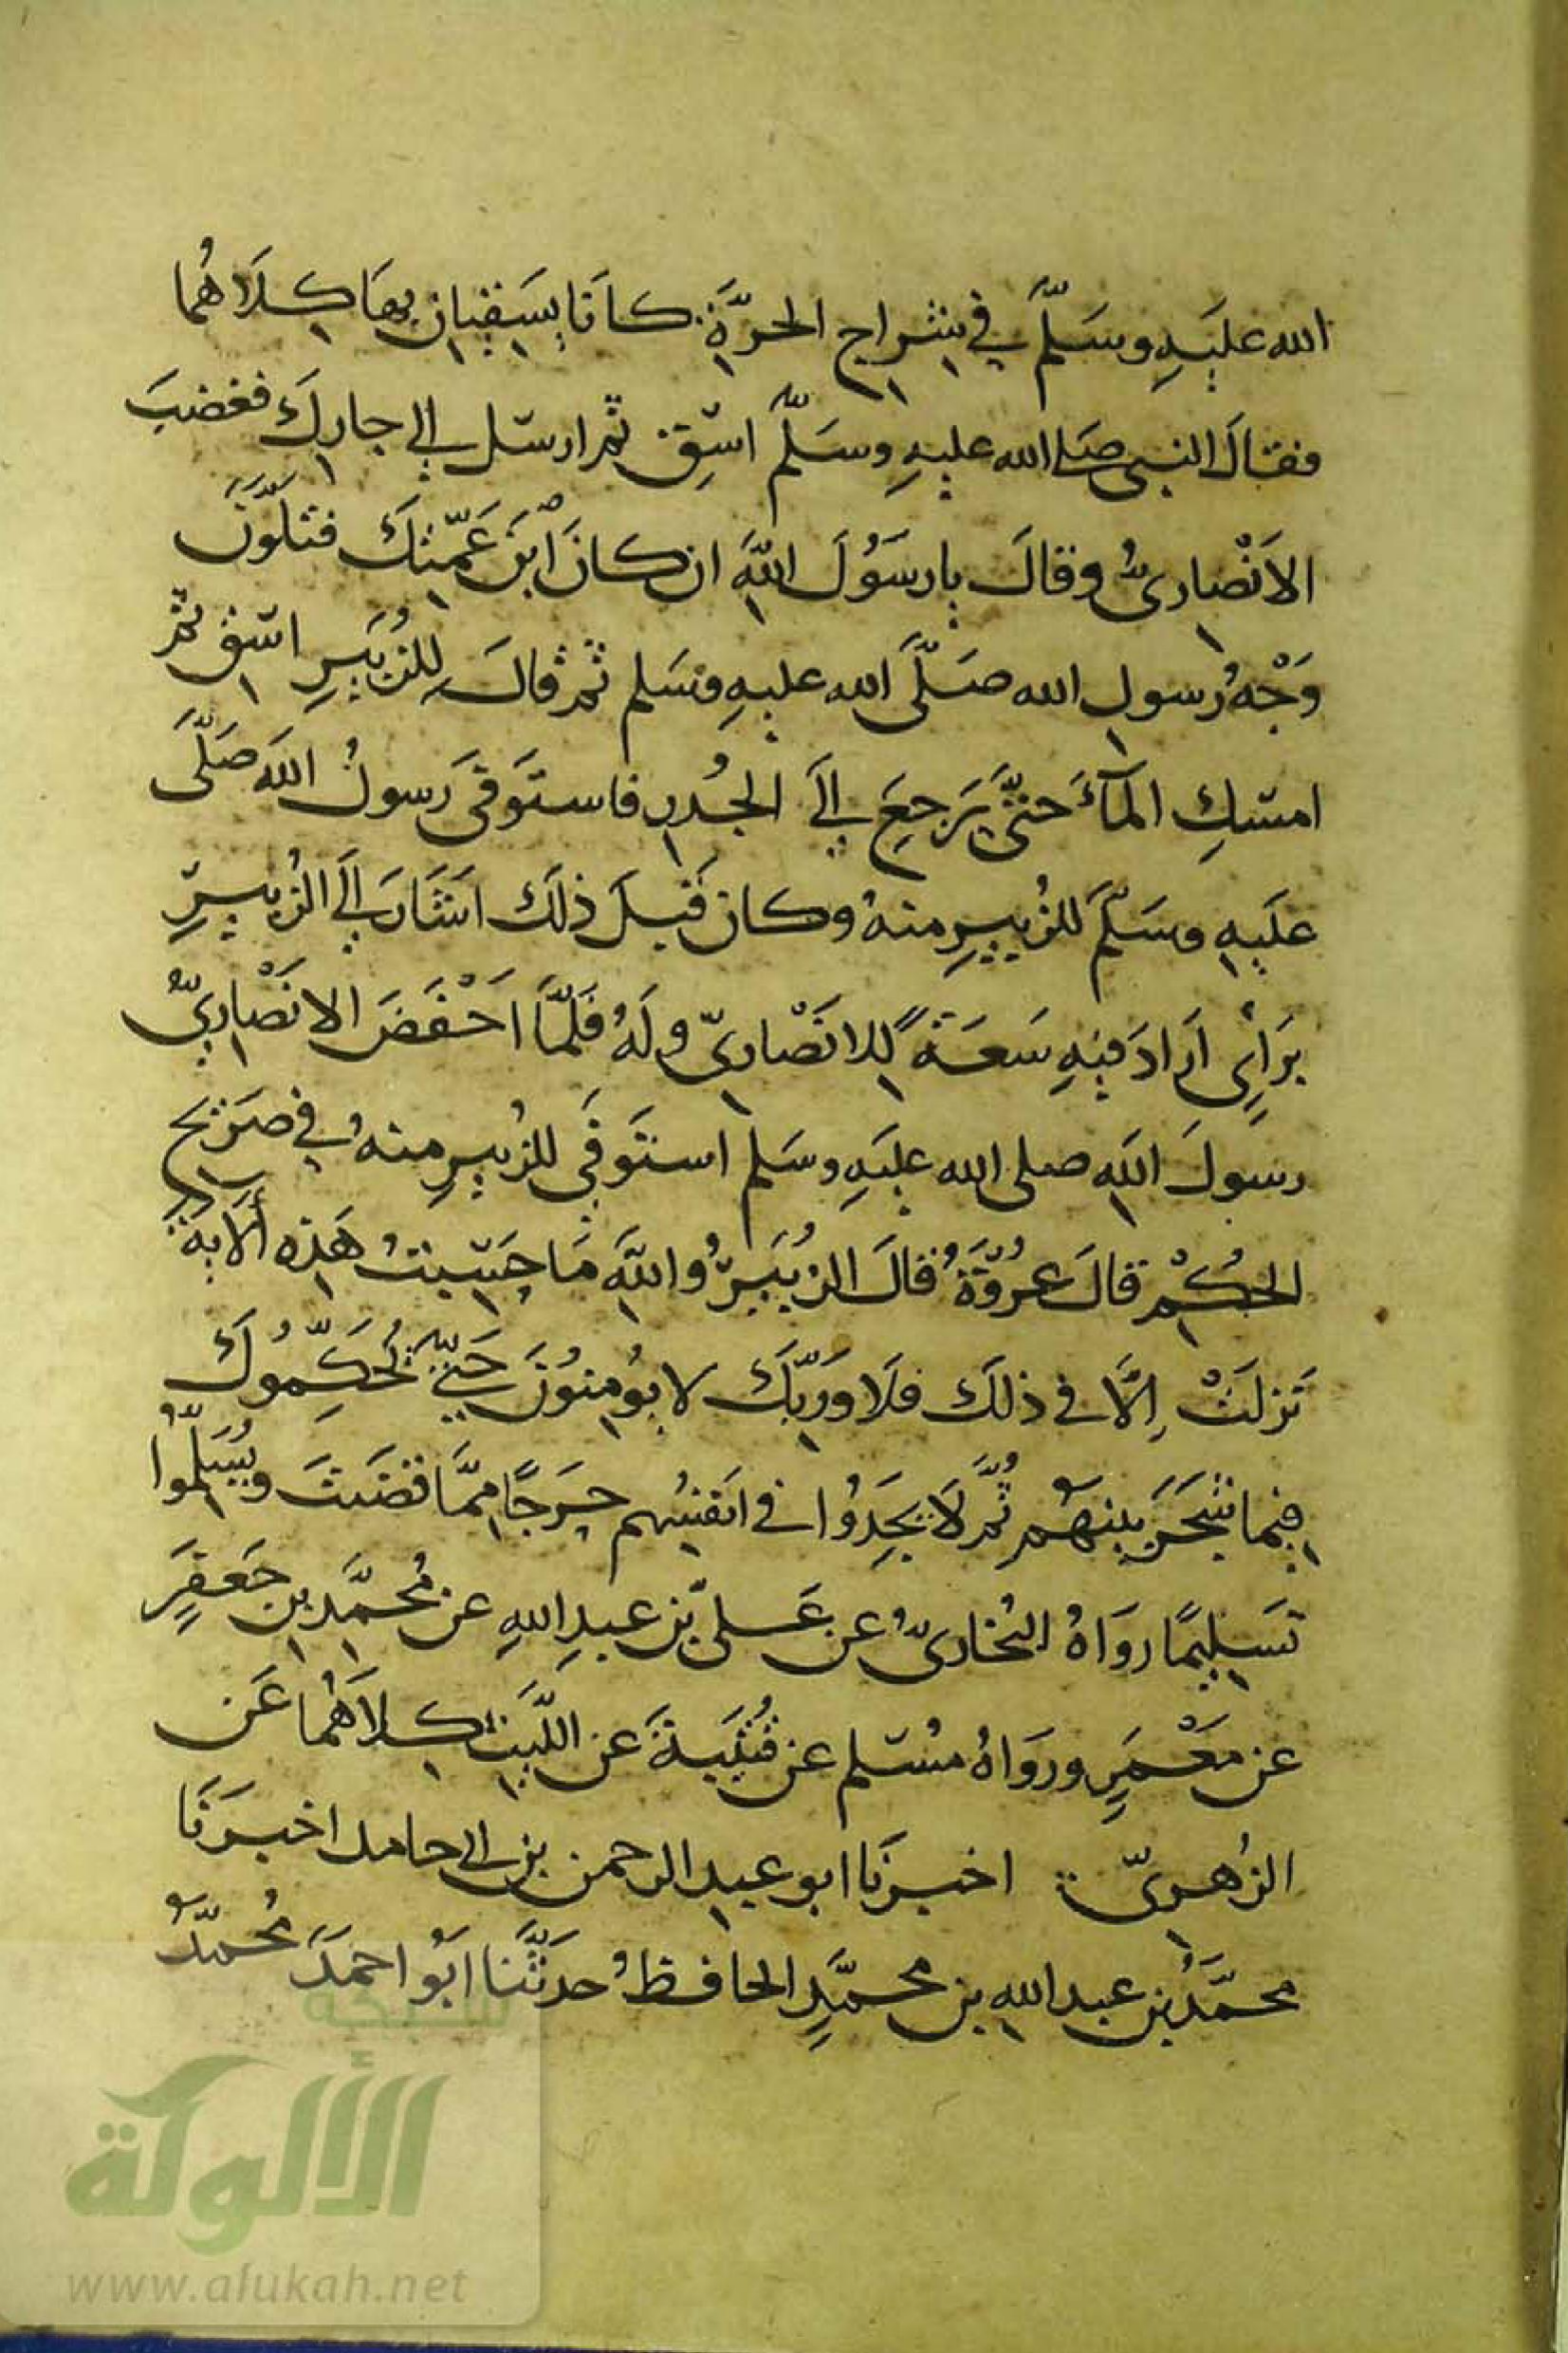 الله عليهِ وسَلّمَ في شِراجِ الحرَّةِ كانَا يسَقِيانِ بِهَا كِلَاهُما
فقالَ النبي صَلى الله عليهِ وسَلّمَ اسْقِ ثم ارسل الي جارِكَ فغضبَ
الاَنْصارِىُّ وقالَ يا رسَوُلَ اللهِ ان كانَ ابْنَ عَمّتِكَ فتَلَوَّنَ
وَجْهُ رسول الله صَلَّى الله عليهِ وسَلم ثم قالَ لِلزُبَيرِ اسْقِ ثم
امسكِ المآءَ حتّى يَرجعَ اليَ الجُدرِ فاستوَفى رَسولُ اللهِ صَلَّى
علَيهِ وسَلّمَ للزُبيرِ منهُ وكان قَبلَ ذلَك اشَارَ اليَ الزُبيرِ
برَايٍ ارادَ فيهِ سَعَةً لِلانَصْارِىّ ولَهُ فَلَمَّا احَْفَضَ الانَصْارِيُّ
رسولَ اللهِ صلى الله علَيهِ وسَلم استَوفَي للزُبيرِ منهُ في صَرِيحِ
الحُكْمِ قالَ عُروَةُ قالَ الزُبَيرُ واللهِ مَا حَسِبتُ هَذِه الايةَ
نَزلَتْ اِلَّا في ذلَكَ فلَا ورَبِّكَ لا يوُمِنوُنَ حَتّيَ يُحَكِّمُوكَ
فِيما شَجَرَ بَينهَُم ثُمَّ لَا يَجِدُوا في انَفسِهم حَرَجًا مِمَّا قضَيتَ ويُسَلِّمُوا
تَسَلِيمًا روَاهُ البُخارىُّ عن عَلىّ بن عبدِ اللهِ عن مُحمَّدِ بنِ جَعَفَرٍ
عن مَعْمَرٍ ورَوَاهُ مسُلم عن قُتَيبَةَ عن اللَّيثِ كِلَاهُما عَن
الزُهرىّ اخبرَنا ابو عبدِ الرحمن بن ابي حامد اخبرَنَا
محمَّدُ بن عبدِ اللهِ بن محمَّدٍ الحافظُ حدثَّنا ابَوُ احمَدَ مُحمدُّ
شبكة
الألوكة
www.alukah.net